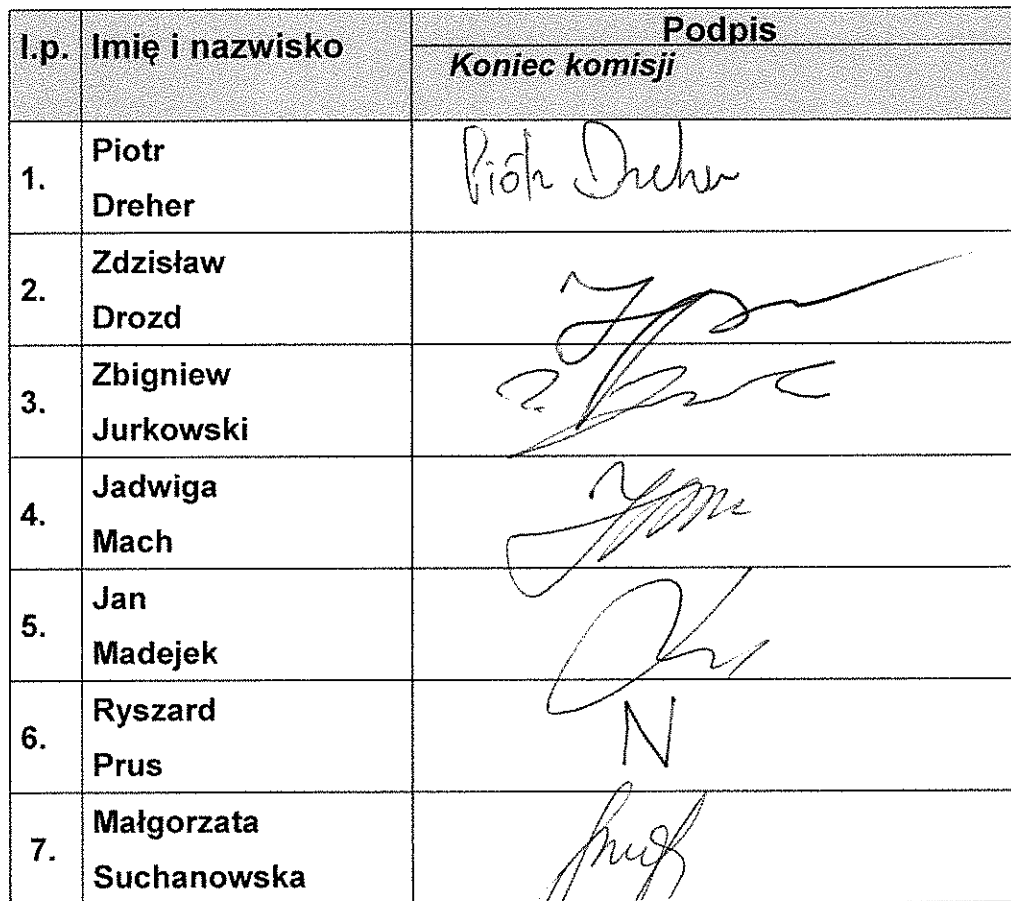 l.p. Imię i nazwisko Podpis
Koniec komisji
1. Piotr
Dreher
Piotr Dreher
2. Zdzisław
Drozd
3. Zbigniew
Jurkowski
4. Jadwiga
Mach
5. Jan
Madejek
6. Ryszard
Prus
N
7. Małgorzata
Suchanowska